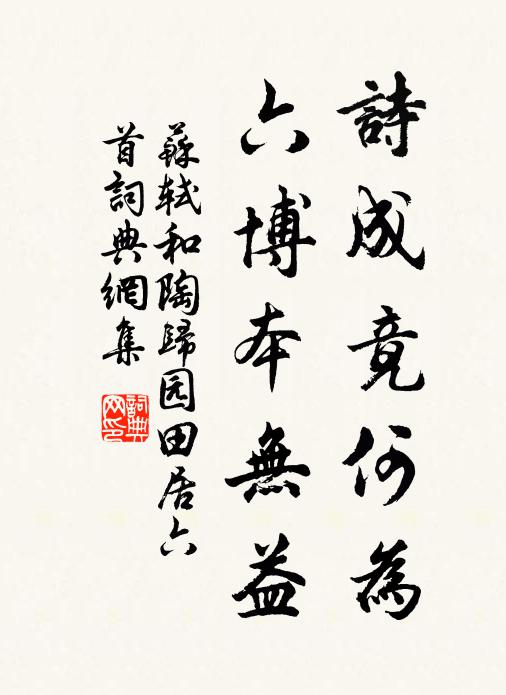 詩成竟何為
六博本無益
蘇軾和陶歸园田居六
首詞典網集
詞典
网印